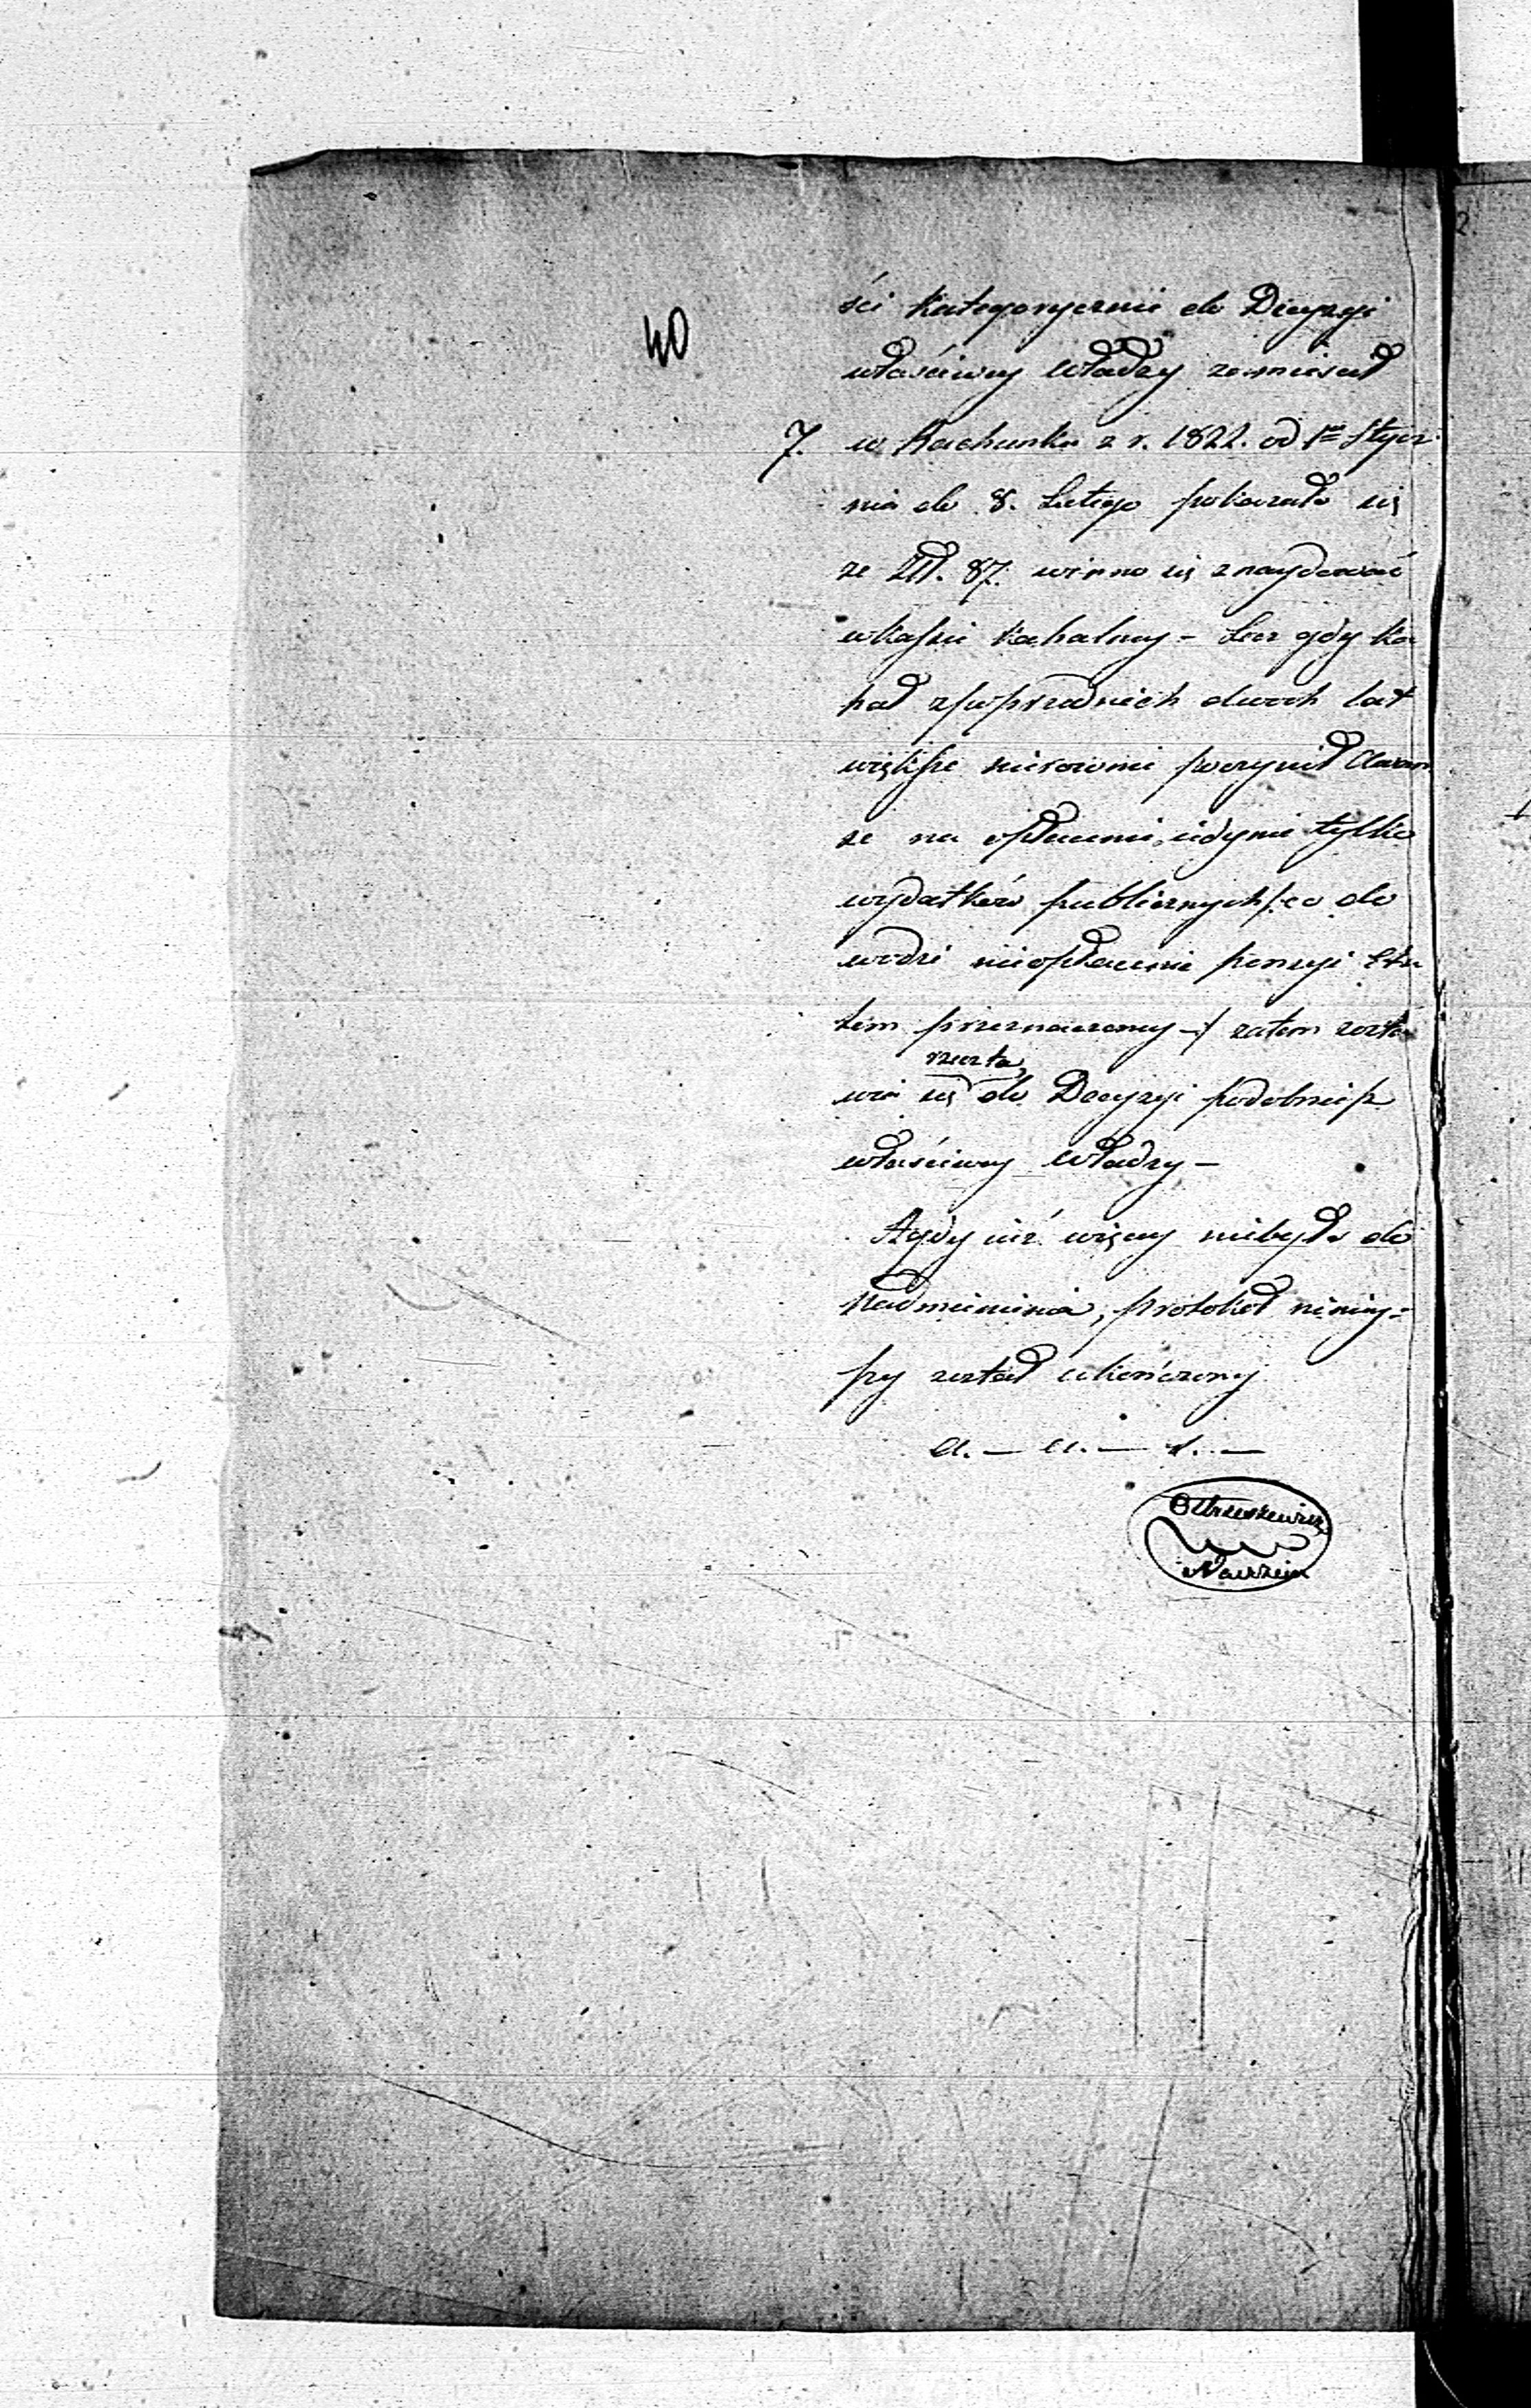 40
ści kategorycznie do Decyzyi
właściwey Władzy zamieścił
7. w Rachunku z r. 1822. od 1go Stycz
nia do 8. Lutego pokazało się
że Złl. 87. winno się znaydować
w kaſsie kahalney – Lecz gdy Ka
hał z poprzednich dwóch lat
więkſze nierównie poczynił Awan
se na opłacenie iedynie tylko
wydatków publicznych /: co do
wodzi nieopłacenie pensyi Eta
tem przeznaczoney –/ zatem zosta
reszta
wia się do Decyzyi podobnieſz
właściwey Władzy –
A gdy iuż więcey niebyło do
nadmienienia, protokół niniey=
ſzy został ukończony
a. — u. — s. —